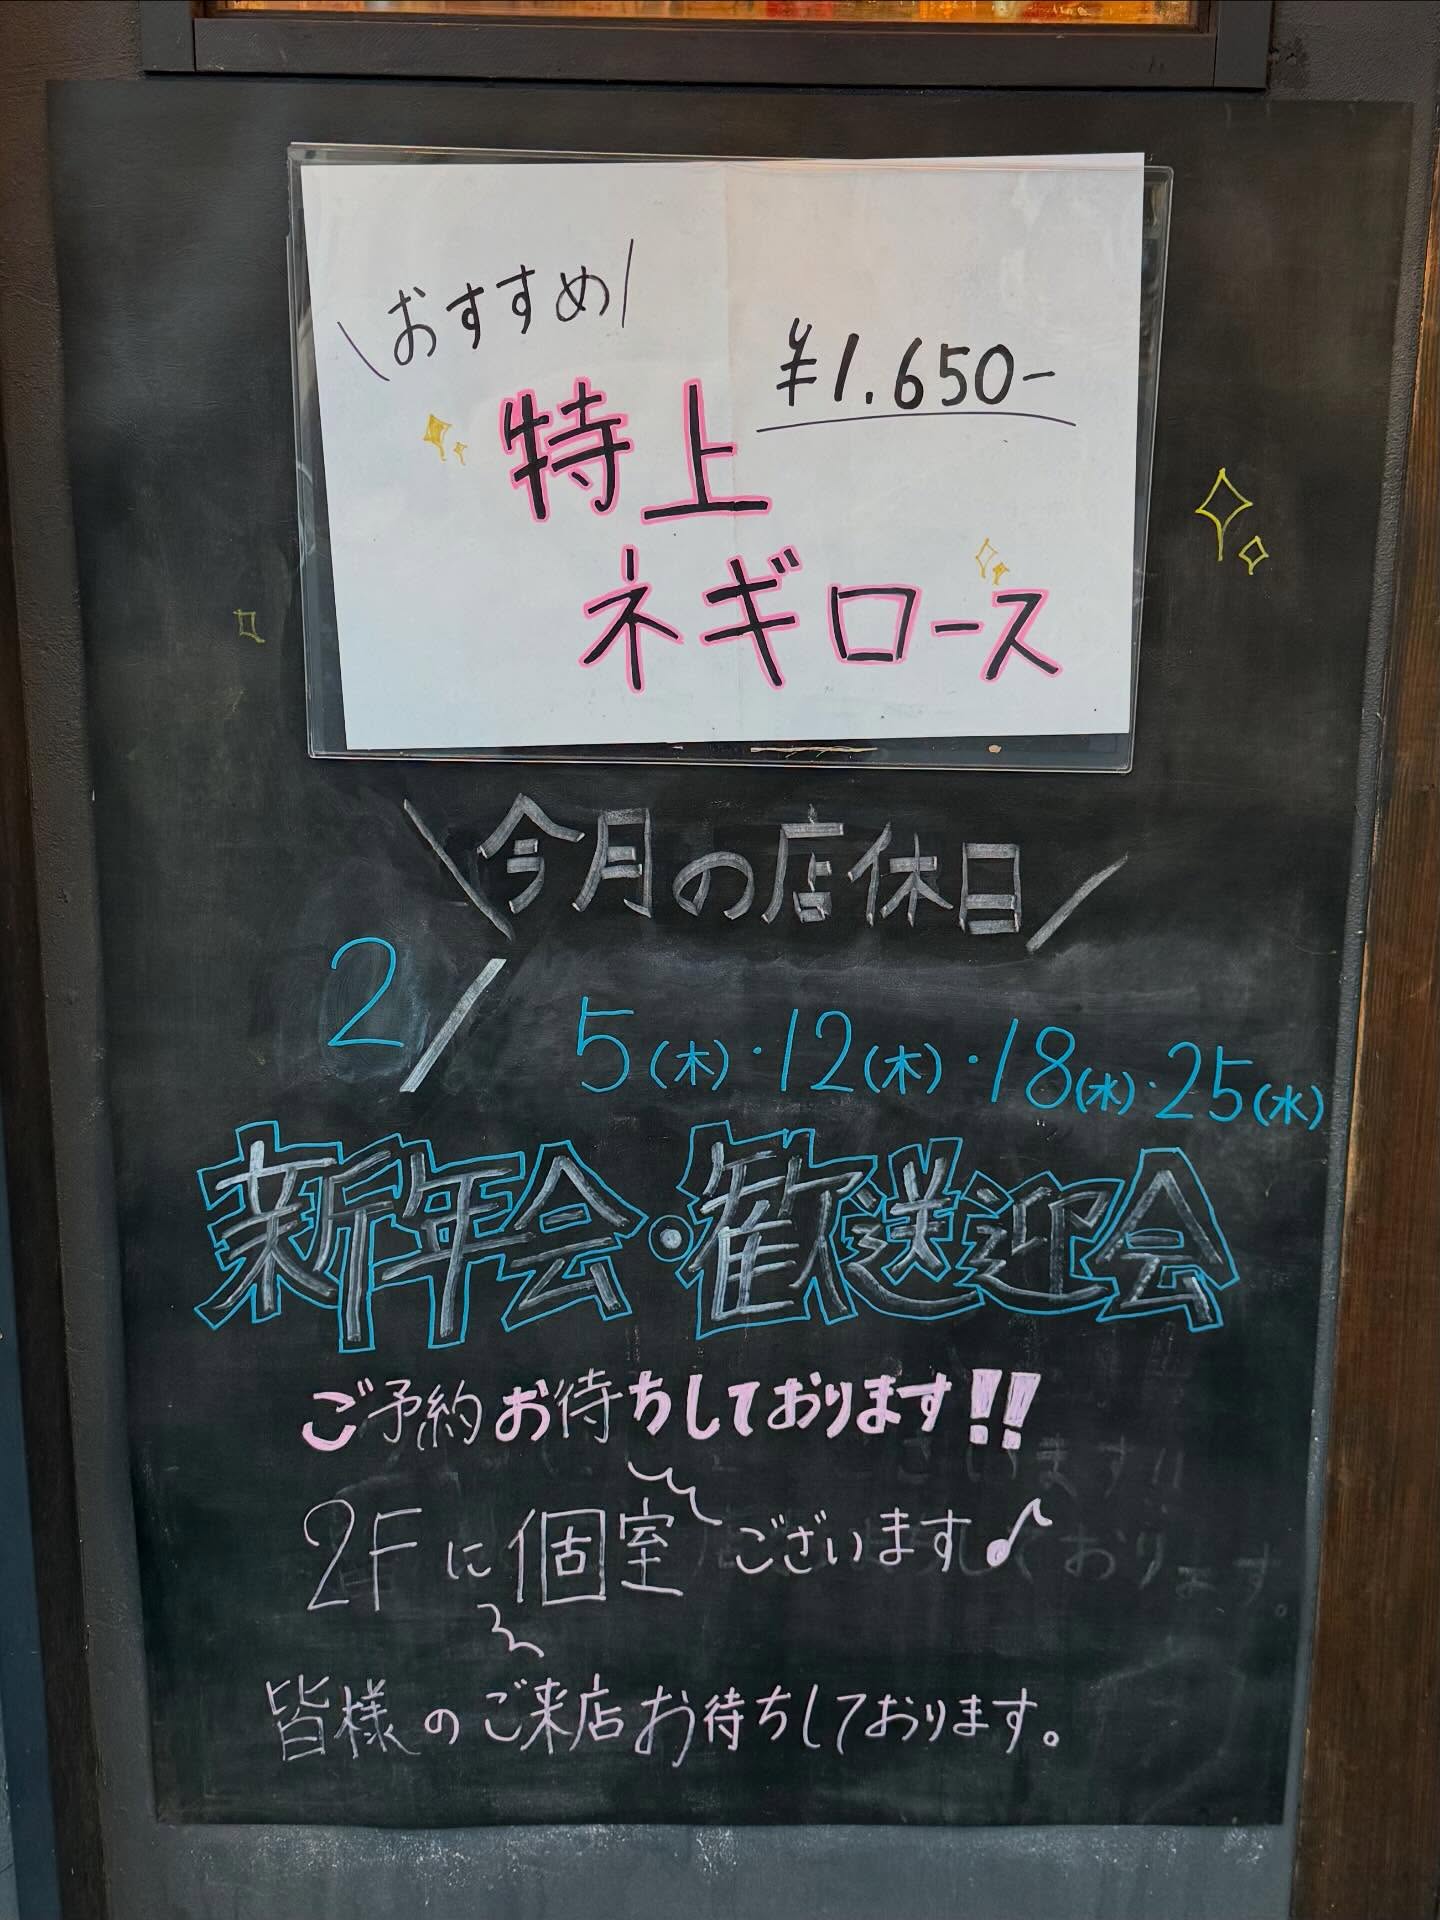 \おすすめ/
¥1.650-
特上
ネギロース
\今月の店休日/
2/ 5(木)・12(木)・18(水)・25(水)
新年会・歓送迎会
ご予約お待ちしております!!
2Fに個室ございます♪
皆様のご来店お待ちしております。